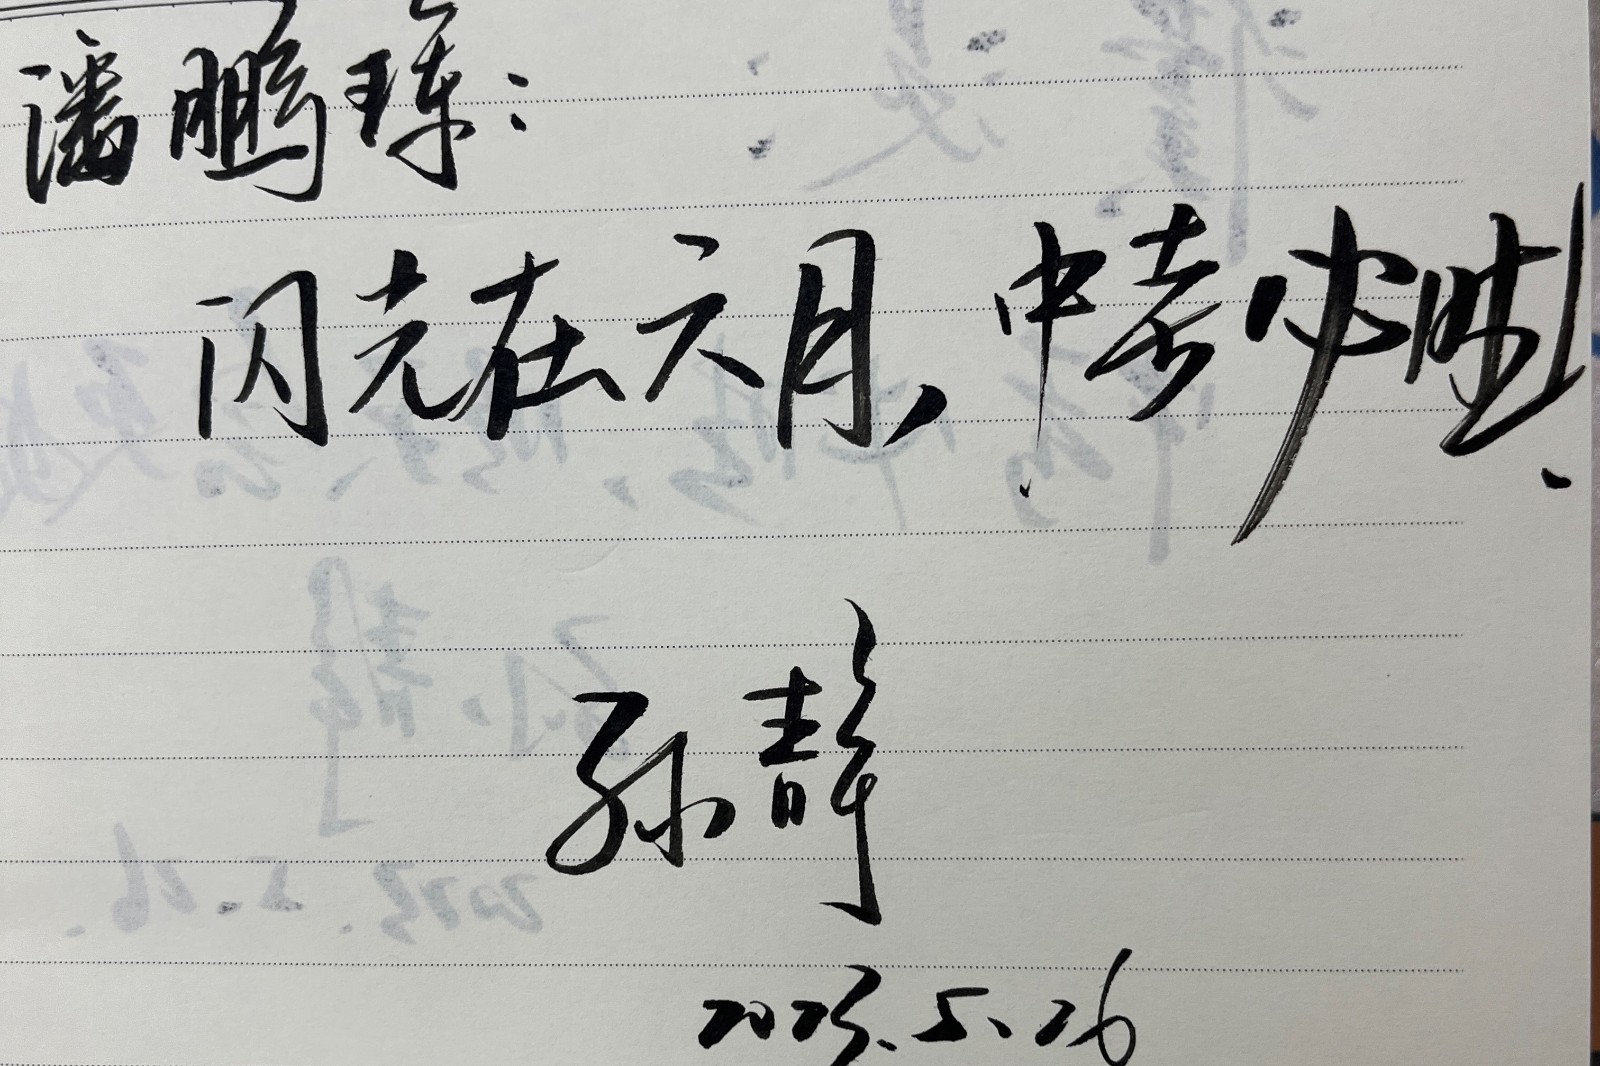 潘鹏臻：
闪光在六月，中考必胜！
孙静
2023.5.26